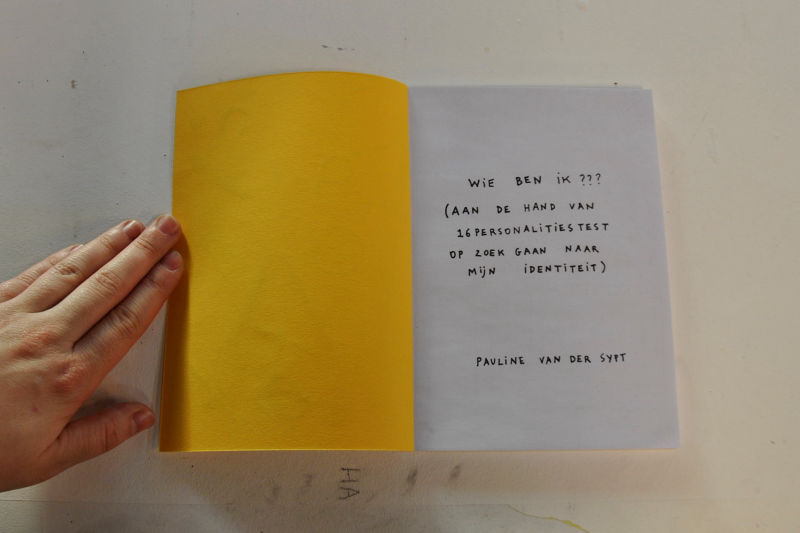 WiE BEN iK ???
(AAN DE HAND VAN
16PERSONALiTiESTEST
OP ZOEK GAAN NAAR
MijN iDENTiTEiT)
PAULiNE VAN DER SYPT
HA